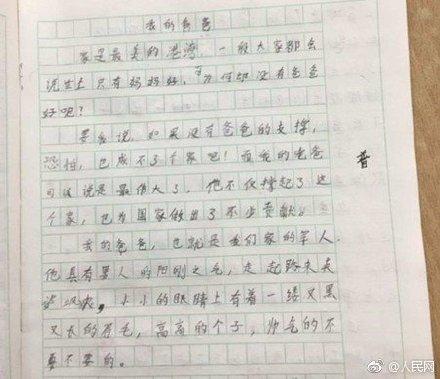 我的爸爸
家是最美的港湾,一般大家都会
说世上只有妈妈好,可为何却没有爸爸
好呢?
要我说,如果没有爸爸的支撑,
恐怕,也成不了个家吧!而我的爸爸
可以说是最伟大了,他不仅撑起了这
个家,也为国家做出了不少贡献。
我的爸爸,也就是我们家的军人.
他具有男人的阳刚之气,走起路来夹
着风,小小的眼睛上有着一缕又黑
又长的眉毛,高高的个子,帅气的不
要不要的。
@人民网